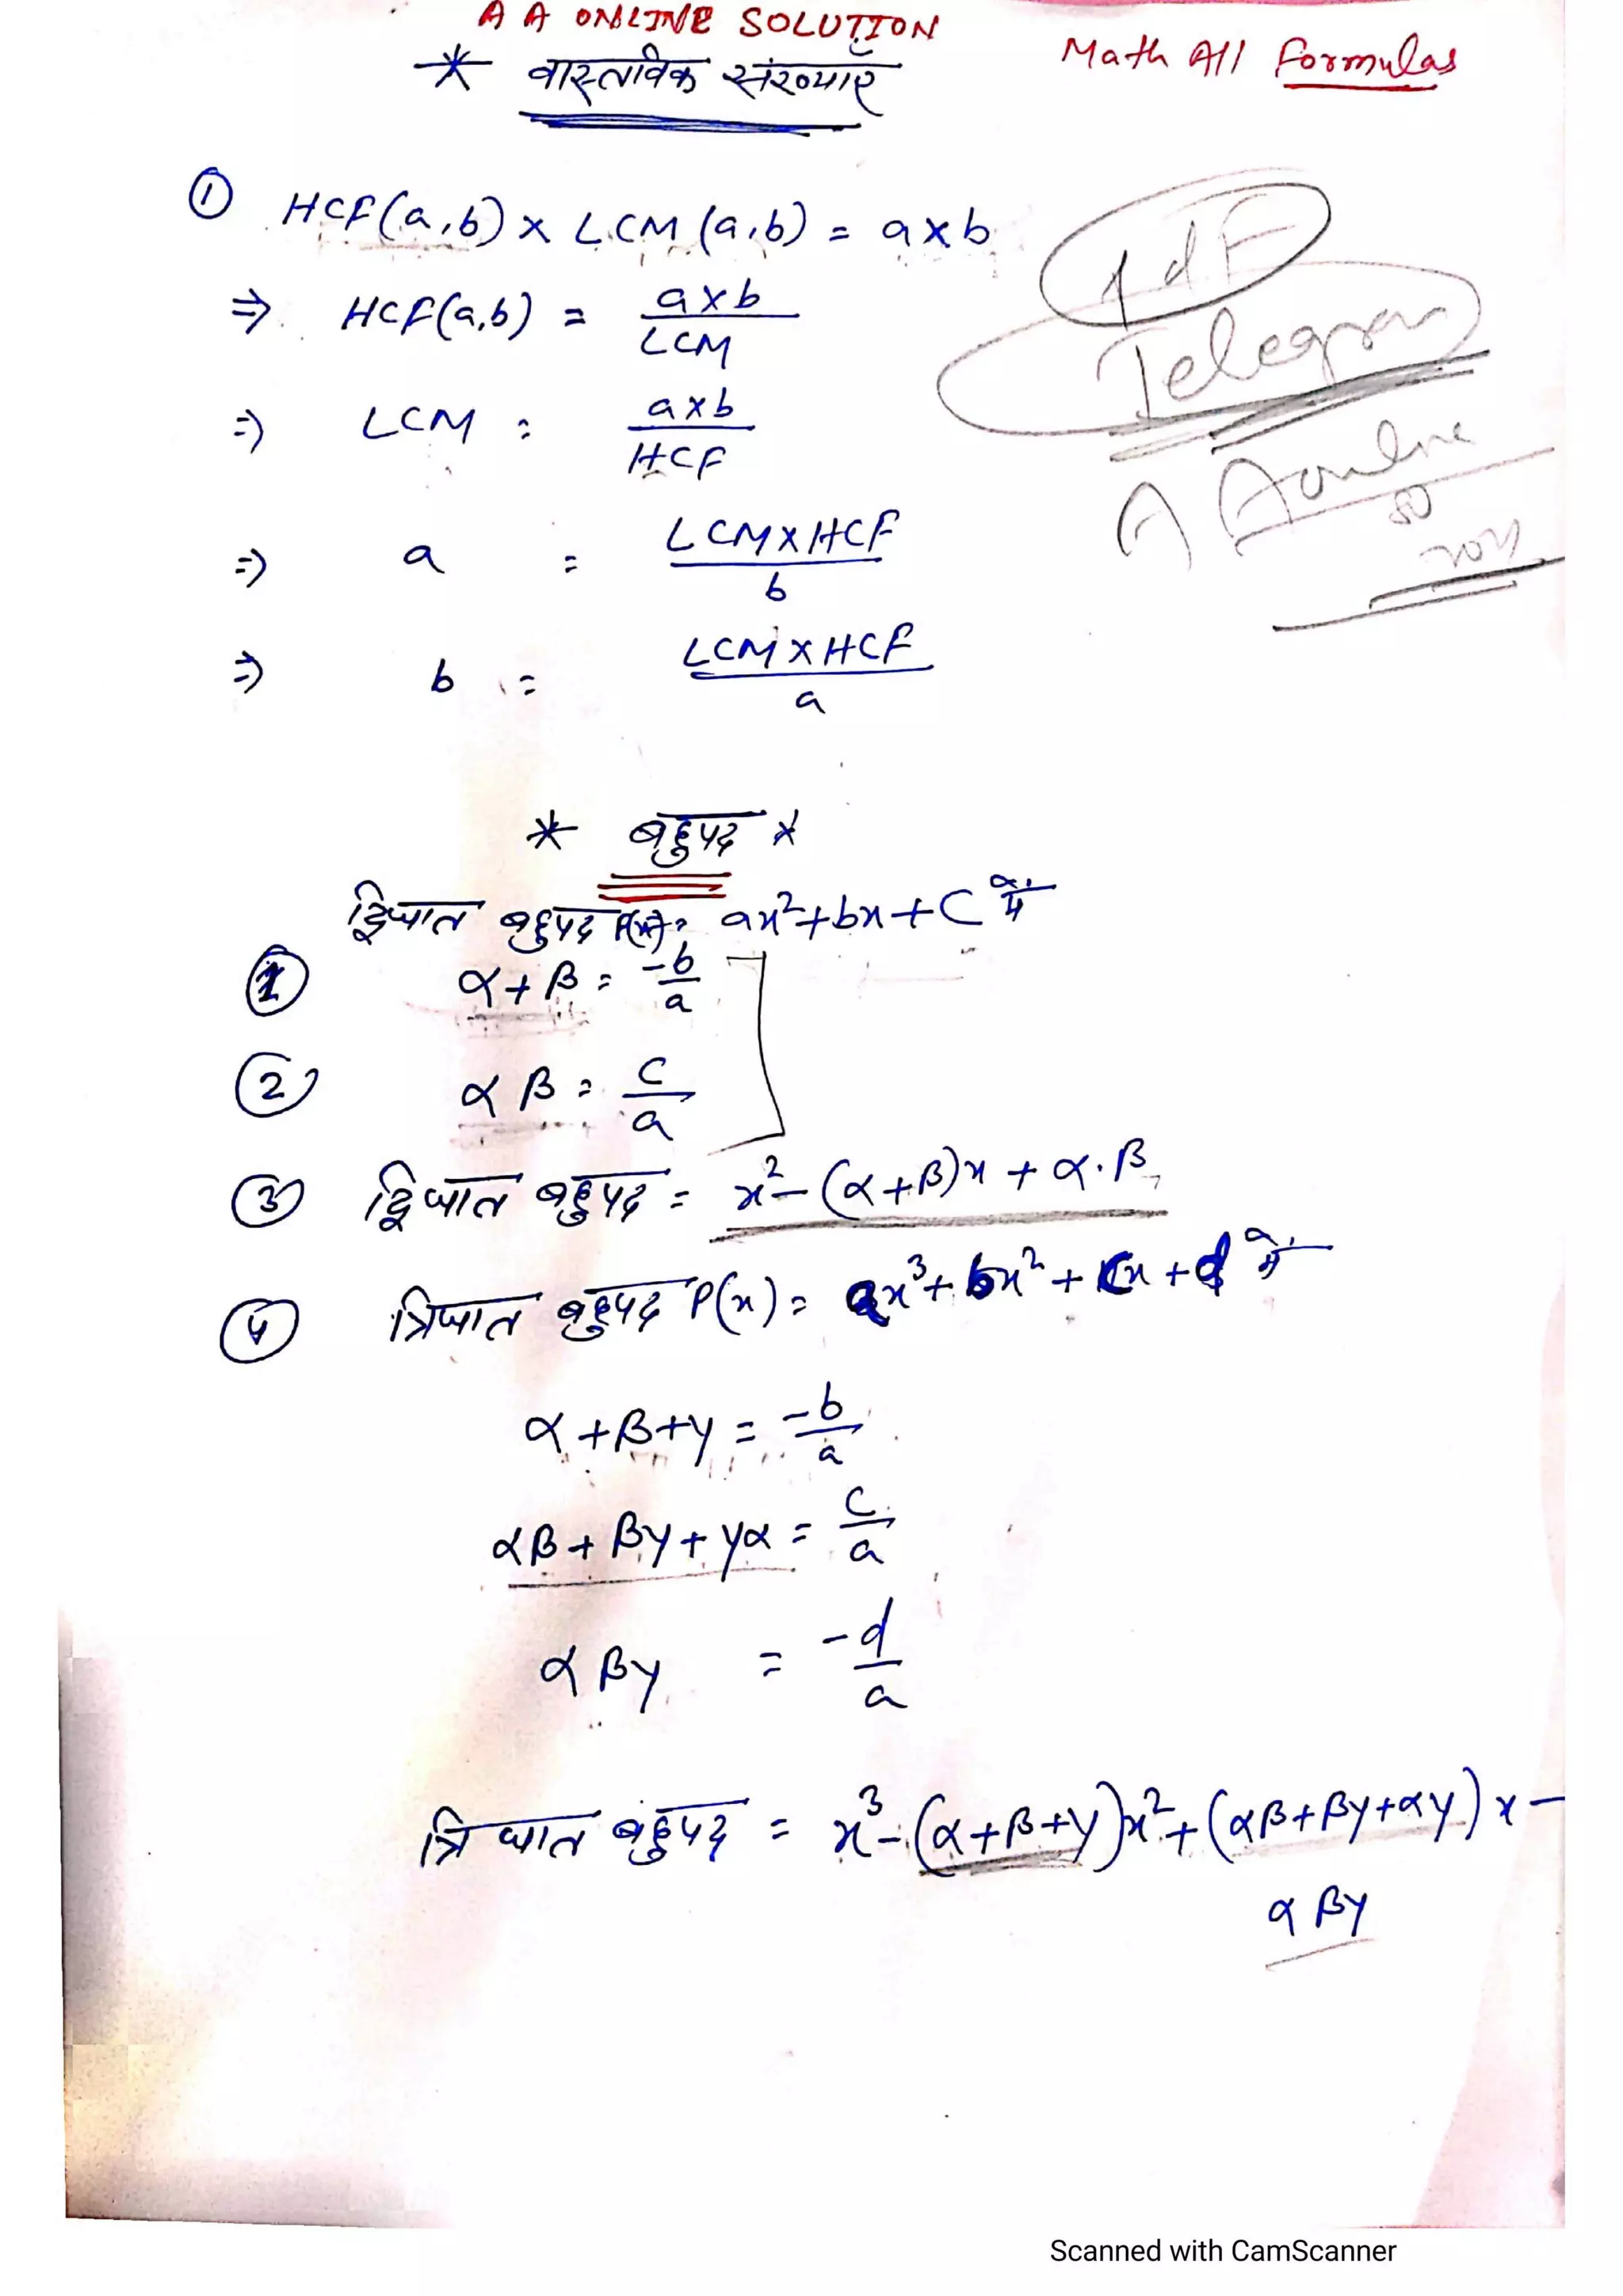 A A ONLINE SOLUTION
Math All Formulas
* वास्तविक संख्याएँ
① HCF(a,b) × LCM(a,b) = a×b
⇒ HCF(a,b) = a×b / LCM
⇒ LCM = a×b / HCF
⇒ a = LCM×HCF / b
⇒ b = LCM×HCF / a
Telegram
A A online
* बहुपद *
द्विघात बहुपद P(x) = ax²+bx+C
① α+β = -b/a
② αβ = c/a
③ द्विघात बहुपद = x²-(α+β)x + α.β
④ त्रिघात बहुपद P(x) = ax³+bx²+cx+d
α+β+γ = -b/a
αβ+βγ+γα = c/a
αβγ = -d/a
त्रिघात बहुपद = x³-(α+β+γ)x²+(αβ+βγ+αγ)x-
αβγ
Scanned with CamScanner